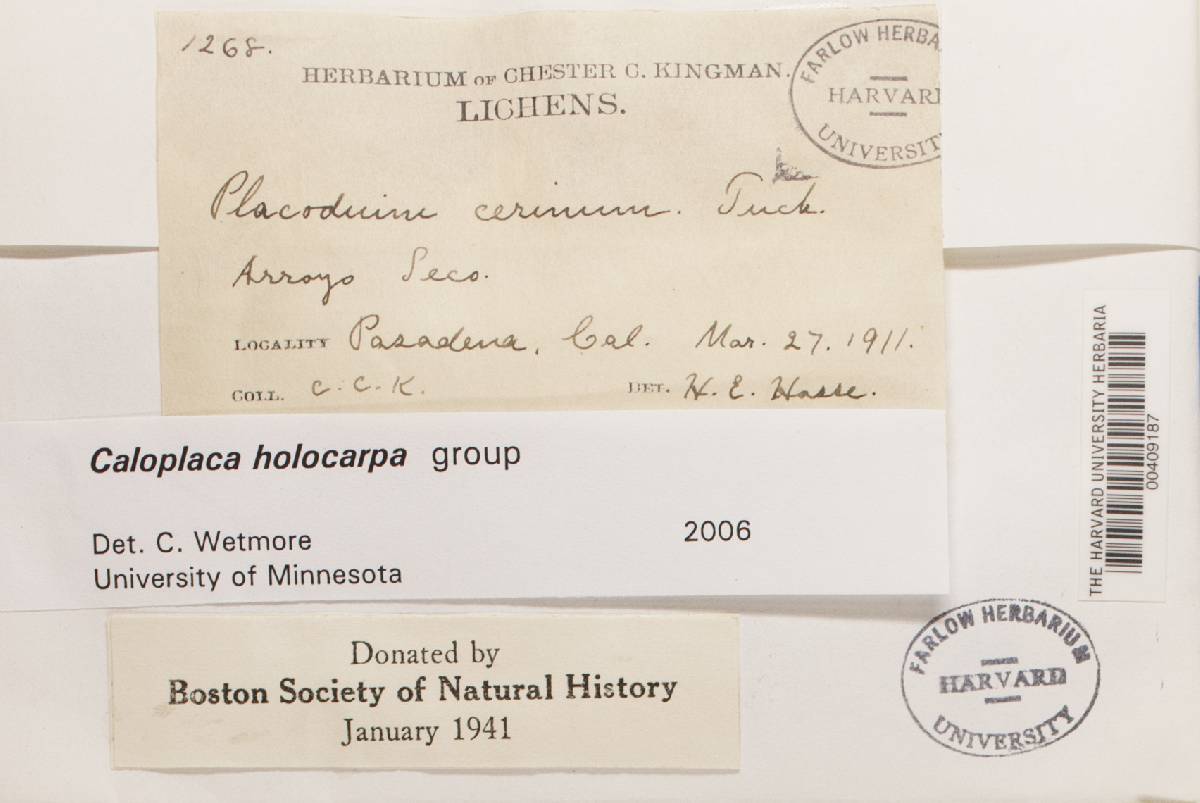 1268.
HERBARIUM OF CHESTER C. KINGMAN.
LICHENS.
FARLOW HERBA
HARVARD
UNIVERSIT
Placodium cerinum. Tuck.
Arroyo Seco.
LOCALITY Pasadena, Cal. Mar. 27. 1911.
COLL. C. C. K. DET. H. E. Hasse.
Caloplaca holocarpa group
Det. C. Wetmore 2006
University of Minnesota
Donated by
Boston Society of Natural History
January 1941
THE HARVARD UNIVERSITY HERBARIA
00409187
FARLOW HERBARIUM
HARVARD
UNIVERSITY